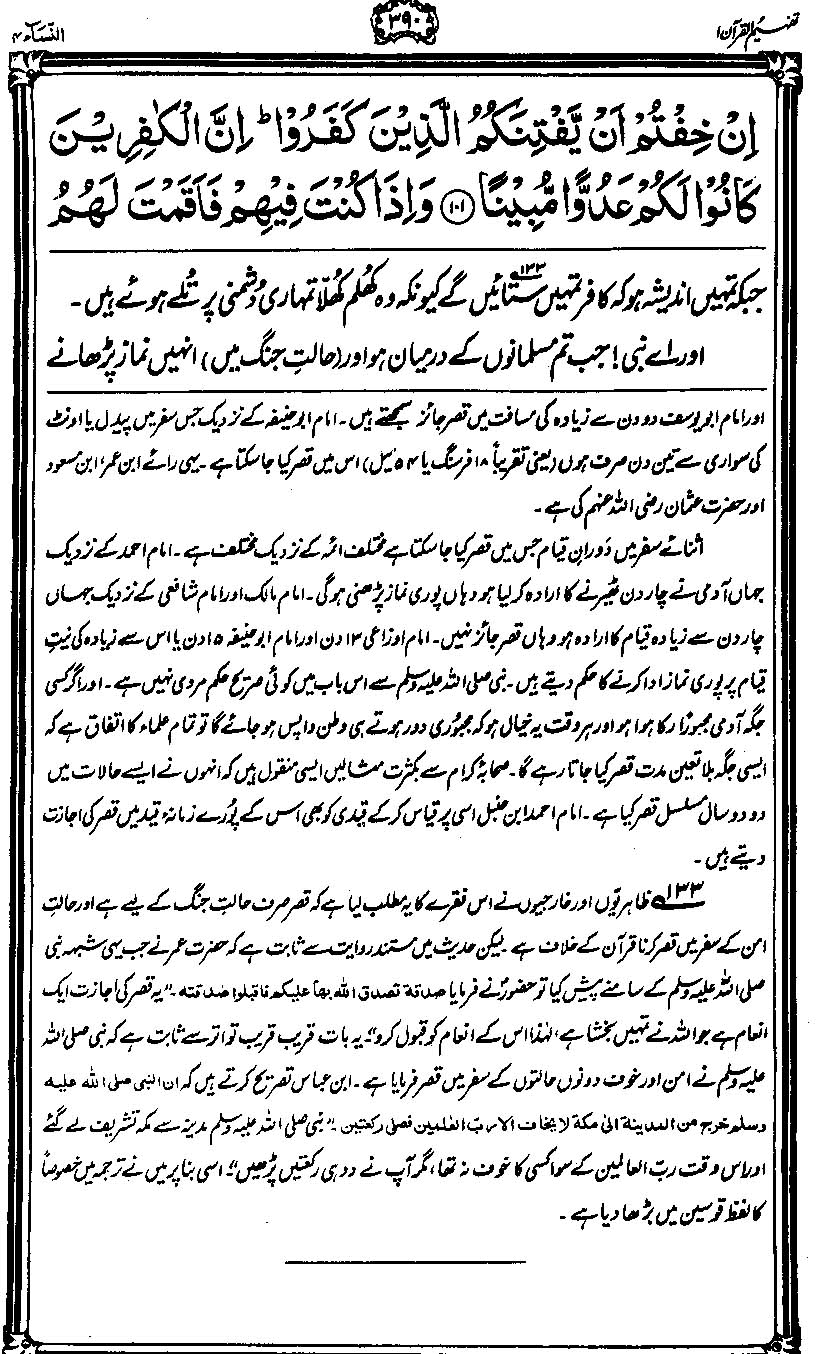 تفہیم القرآن ۱
۳۹۰
النساء ۴
اِنْ خِفْتُمْ اَنْ يَّفْتِنَكُمُ الَّذِيْنَ كَفَرُوْا ؕ اِنَّ الْكٰفِرِيْنَ
كَانُوْا لَكُمْ عَدُوًّا مُّبِيْنًا ﴿۱۰۱﴾ وَاِذَا كُنْتَ فِيْهِمْ فَاَقَمْتَ لَهُمُ
جبکہ تمہیں اندیشہ ہو کہ کافر تمہیں ستائیں گے ۱۳۳ کیونکہ وہ کھُلم کھُلّا تمہاری دُشمنی پر تُلے ہوئے ہیں۔
اور اے نبی! جب تم مسلمانوں کے درمیان ہو اور (حالتِ جنگ میں) انہیں نماز پڑھانے
اور امام ابو یوسف دو دن سے زیادہ کی مسافت میں قصر جائز سمجھتے ہیں۔ امام ابو حنیفہ کے نزدیک جس سفر میں پیدل یا اونٹ
کی سواری سے تین دن صرف ہوں (یعنی تقریباً ۱۸ فرسنگ یا ۵۴ میل) اس میں قصر کیا جا سکتا ہے۔ یہی رائے ابن عمر، ابن مسعود
اور حضرت عثمان رضی اللہ عنہم کی ہے۔
اثنائے سفر میں دَورانِ قیام جس میں قصر کیا جا سکتا ہے مختلف ائمہ کے نزدیک مختلف ہے۔ امام احمد کے نزدیک
جہاں آدمی نے چار دن ٹھیرنے کا ارادہ کر لیا ہو وہاں پوری نماز پڑھنی ہوگی۔ امام مالک اور امام شافعی کے نزدیک جہاں
چار دن سے زیادہ قیام کا ارادہ ہو وہاں قصر جائز نہیں۔ امام اوزاعی ۱۳ دن اور امام ابو حنیفہ ۱۵ دن یا اس سے زیادہ کی نیتِ
قیام پر پوری نماز ادا کرنے کا حکم دیتے ہیں۔ نبی صلی اللہ علیہ وسلم سے اس باب میں کوئی صریح حکم مروی نہیں ہے۔ اور اگر کسی
جگہ آدمی مجبوراً رکا ہوا ہو اور ہر وقت یہ خیال ہو کہ مجبوری دور ہوتے ہی وطن واپس ہو جائے گا تو تمام علماء کا اتفاق ہے کہ
ایسی جگہ بلا تعینِ مدت قصر کیا جاتا رہے گا۔ صحابۂ کرام سے بکثرت مثالیں ایسی منقول ہیں کہ انہوں نے ایسے حالات میں
دو دو سال مسلسل قصر کیا ہے۔ امام احمد ابن حنبل اسی پر قیاس کر کے قیدی کو بھی اس کے پُورے زمانۂ قید میں قصر کی اجازت
دیتے ہیں۔
۱۳۳ ظاہریوں اور خارجیوں نے اس فقرے کا یہ مطلب لیا ہے کہ قصر صرف حالتِ جنگ کے لیے ہے اور حالتِ
امن کے سفر میں قصر کرنا قرآن کے خلاف ہے۔ لیکن حدیث میں مستند روایت سے ثابت ہے کہ حضرت عمر نے جب یہی شبہہ نبی
صلی اللہ علیہ وسلم کے سامنے پیش کیا تو حضورؐ نے فرمایا صدقة تصدق الله بها عليكم فاقبلوا صدقته۔ "یہ قصر کی اجازت ایک
انعام ہے جو اللہ نے تمہیں بخشا ہے، لہٰذا اس کے انعام کو قبول کرو"۔ یہ بات قریب قریب تواتر سے ثابت ہے کہ نبی صلی اللہ
علیہ وسلم نے امن اور خوف دونوں حالتوں کے سفر میں قصر فرمایا ہے۔ ابن عباس تصریح کرتے ہیں کہ ان النبى صلى الله عليه
وسلم خرج من المدينة الى مكة لا يخاف الا رب العلمين فصلى ركعتين۔ "نبی صلی اللہ علیہ وسلم مدینہ سے مکہ تشریف لے گئے
اور اس وقت ربّ العالمین کے سوا کسی کا خوف نہ تھا، مگر آپ نے دو ہی رکعتیں پڑھیں"۔ اسی بنا پر میں نے ترجمہ میں خصوصاً
کا لفظ قوسین میں بڑھا دیا ہے۔